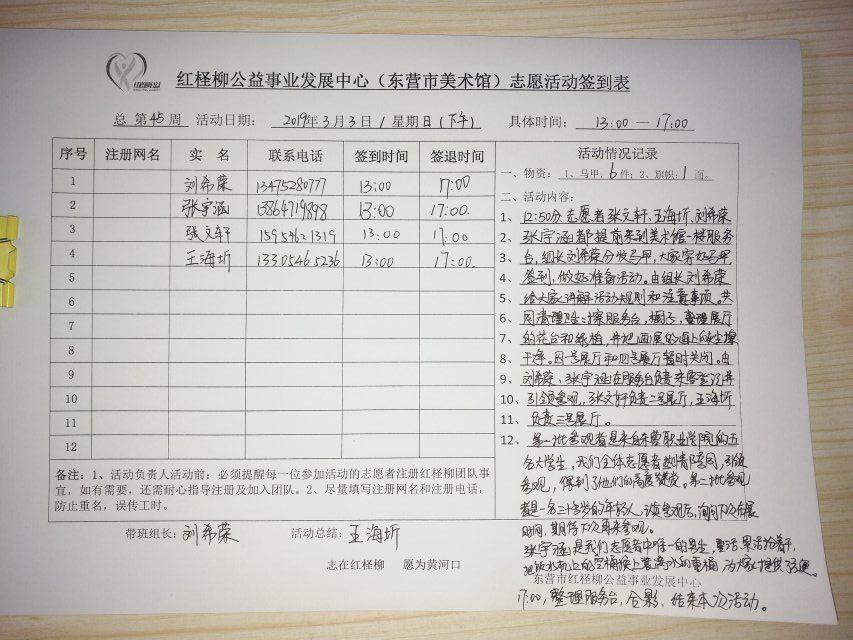 红柽柳公益事业发展中心（东营市美术馆）志愿活动签到表
总 第45周 活动日期： 2019年3月3日/星期日(下午) 具体时间： 13:00 — 17:00
序号 注册网名 实 名 联系电话 签到时间 签退时间
1 刘希荣 13475280777 13:00 17:00
2 张宇涵 13864719898 13:00 17:00.
3 张文轩 15954621319 13:00 17:00
4 王海圻 13305465236 13:00 17:00.
5
6
7
8
9
10
11
12
备注：1、活动负责人活动前：必须提醒每一位参加活动的志愿者注册红柽柳团队事
宜，如有需要，还需耐心指导注册及加入团队。2、尽量填写注册网名和注册电话，
防止重名，误传工时。
活动情况记录
一、物资：1、马甲：6件；2、旗帜：1面。
二、活动内容：
1、12:50分志愿者张文轩、王海圻、刘希荣
2、张宇涵都提前来到美术馆一楼服务
3、台，组长刘希荣分发马甲，大家穿好马甲
4、签到，做好准备活动。由组长刘希荣
5、给大家讲解活动规则和注意事项。共
6、同清理卫生：擦服务台，棚子，整理展厅
7、的花台和绿植，并把画展的墙上的尘擦
8、干净。四号展厅暂时关闭。由
9、刘希荣、张宇涵在服务台负责来客登记并
10、引领参观，张文轩负责二号展厅，王海圻
11、负责三号展厅。
12、第一批参观者是来自东营职业学院的五
名大学生，我们全体志愿者热情陪同，引领
参观，得到了他们的高度赞赏。第二批参观
者是一名三十多岁的年轻人，
时间，期待下次再来参观。
张宇涵是我们志愿者中唯一的男生，重活累活抢着干，
把饮水机上的空桶换上装满水的重桶，为大家提供了方便。
17:00，整理服务台，合影，结束本次活动。
带班组长：刘希荣 活动总结：王海圻
志在红柽柳 愿为黄河口
东营市红柽柳公益事业发展中心